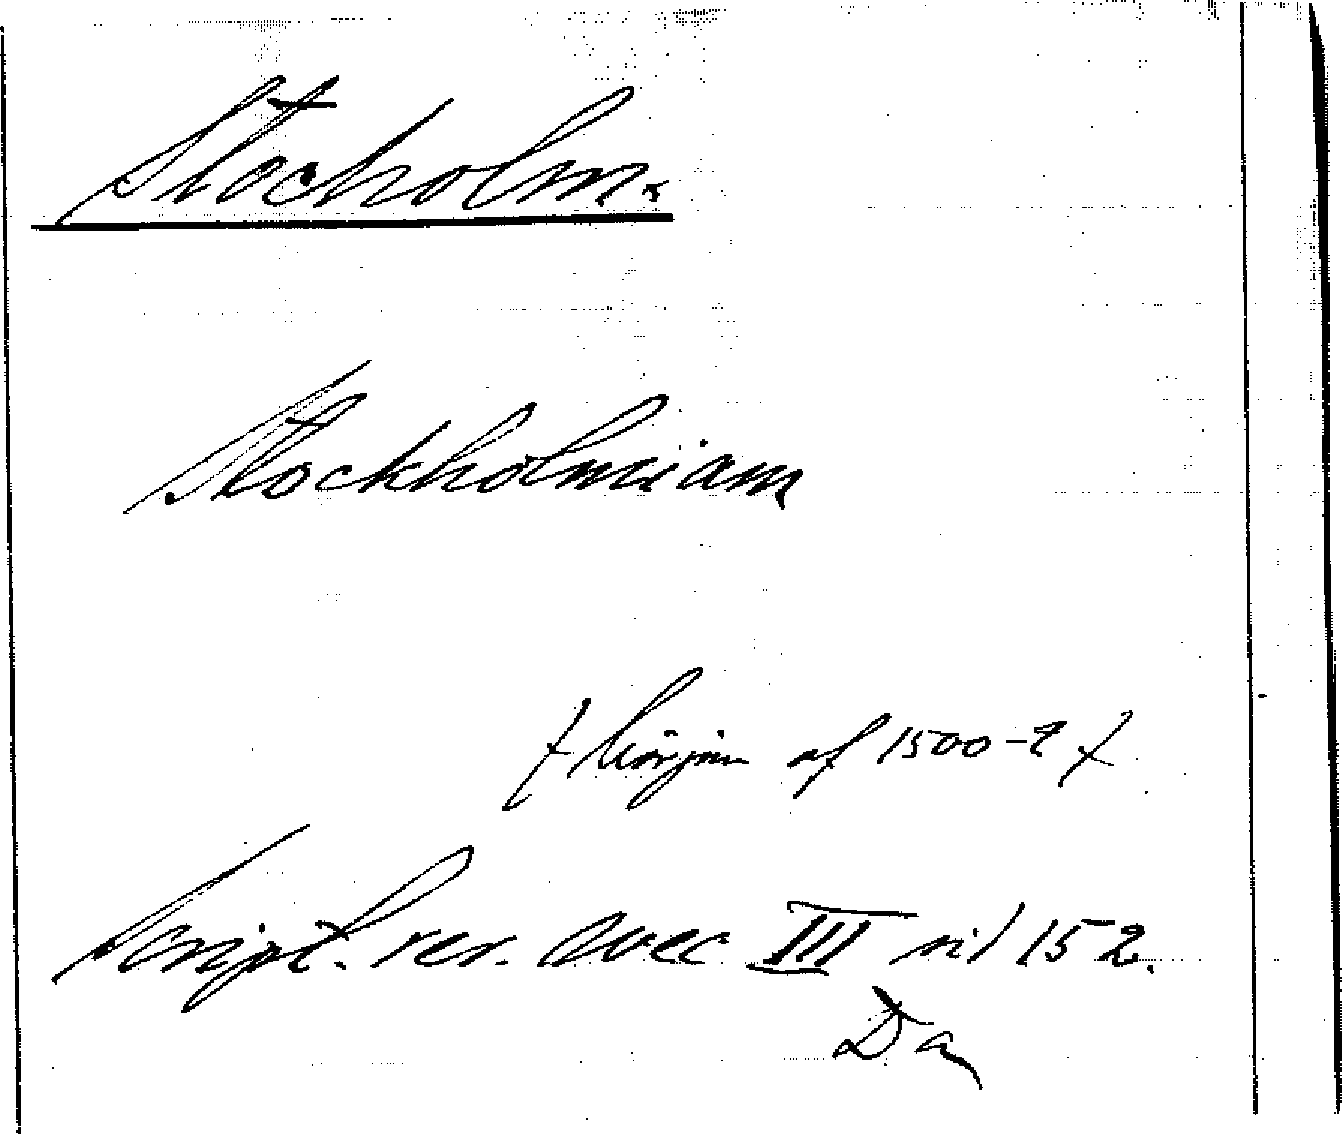 Stocholm.
Stockholmiam
början af 1500-t
Script. rer. svec III sid 152.
Da